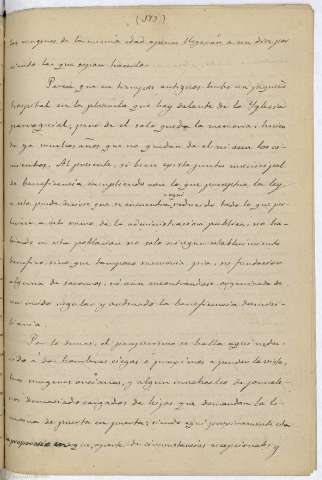 (577)
las mugeres de la misma edad apenas llegarán a un diez por
ciento las que sepan hacerlo.
Parece que en tiempos antiguos hubo un pequeño
hospital en la plazuela que hay delante de la Yglesia
parroquial, pero de él solo queda la memoria, hace
de ya muchos años, que no quedan de él ni aun los ci-
mientos. Al presente, si bien existe junta municipal
de beneficencia cumpliendo con lo que preceptua la ley,
a esto puede decirse que se encuentra aquí reducido todo lo que per-
tenece a este ramo de la administracion publica, no ha-
biendo en esta poblacion no solo ningun establecimiento
benéfico, sino que tampoco memoria pia, ni fundacion
alguna de socorros, ni aun encontrandose organizada de
un modo regular y ordenado la beneficencia domici-
liaria.
Por lo demas, el pauperismo se halla aquí redu-
cido á dos hombres ciegos ó proximos a perder la vista,
tres mugeres ancianas, y algun muchacho de jornale-
ros demasiado cargados de hijos, que demandan la li-
mosna de puerta en puerta; siendo aquí proximamente esta
la proporcion en que, aparte de circunstancias excepcionales y